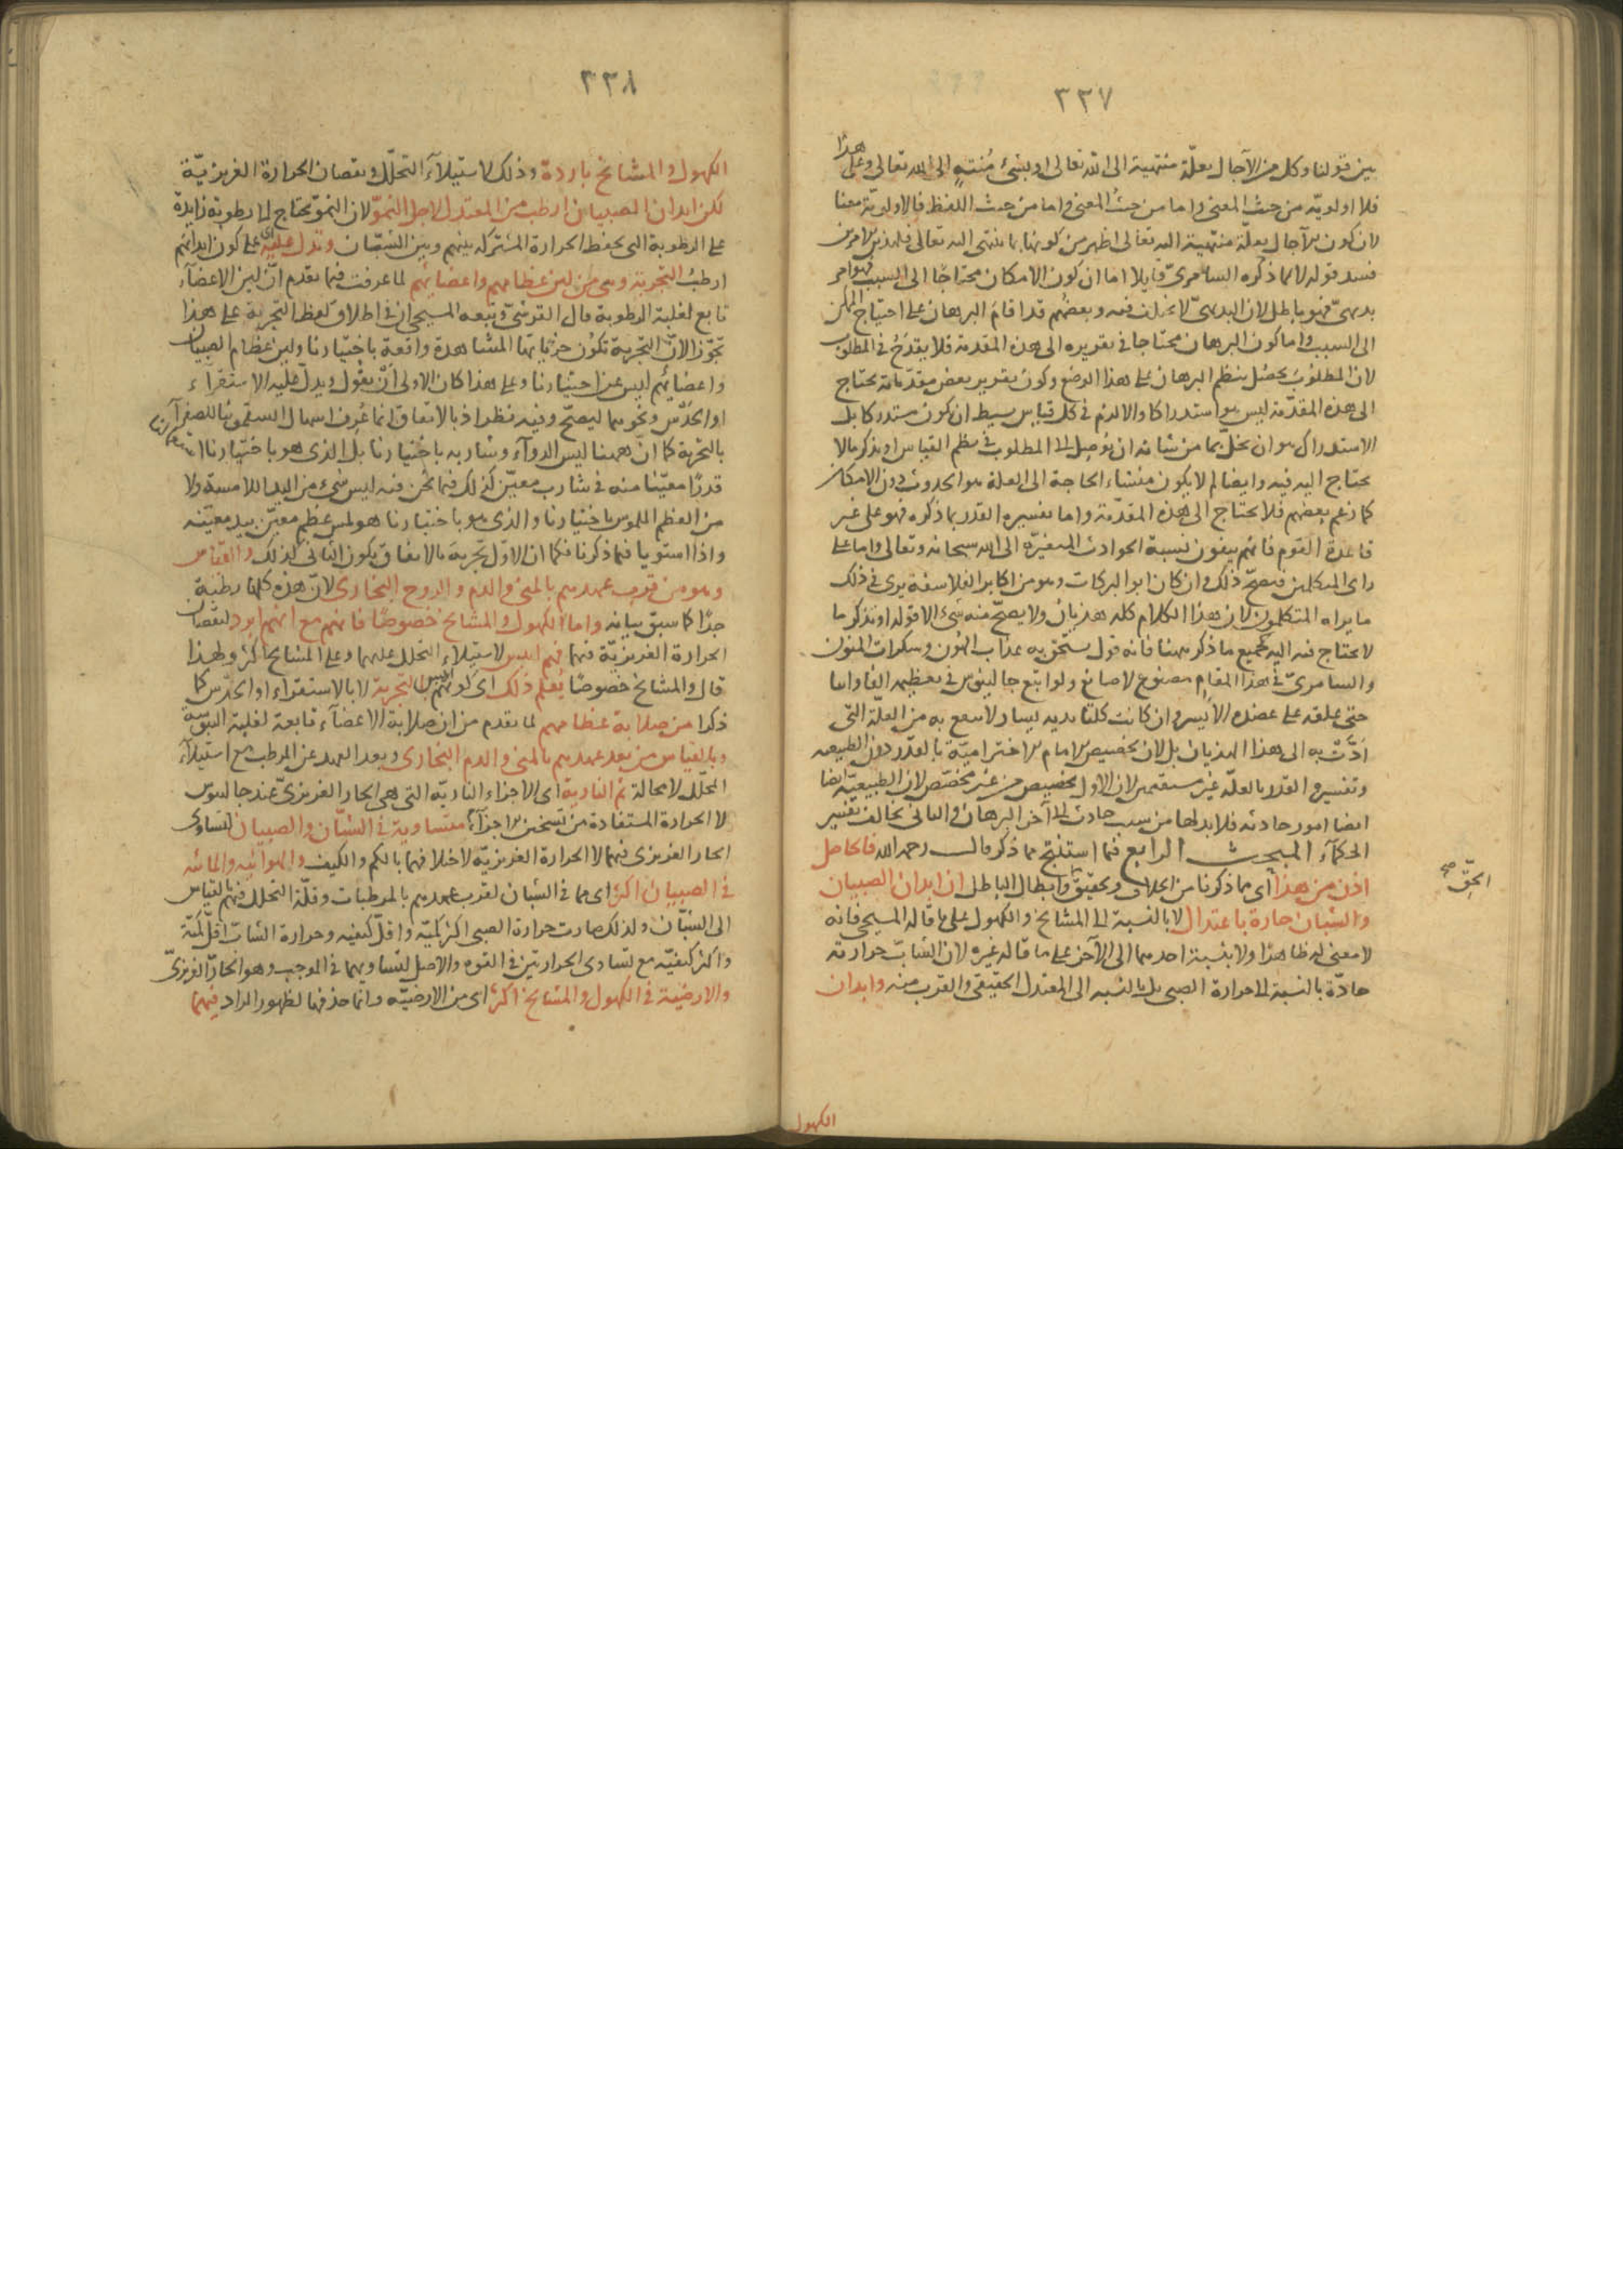 ٣٣٧
بين قولنا وكل من الآجال بعلّة منتهية الى الله تعالى او بشئ مُنتهٍ الى الله تعالى وعلى هذا
فلا اولويّة من حيث المعنى واما من حيث المعنى واما من حيث اللفظ فالاولويّة معنا
لان كون الآجال بعلّة منتهية اليه تعالى اظهر من كونها بما ينتهى اليه تعالى فلهذين الامرين
فسد قوله لا لما ذكره السامرىّ قايلا اما ان كون الامكان محتاجًا الى السبب فهو امر
بديهىّ فهو باطل لان البديهىّ لا يختلف فيه وبعضهم قد اقام البرهان على احتياج الممكن
الى السبب واما كون البرهان محتاجا فى تقريره الى هذه المقدمة فلا يقدح فى المطلوب
لان المطلوبَ يحصُل بنظم البرهان على هذا الوضع وكون تقرير بعض مقدّماته يحتاج
الى هذه المقدّمة ليس هو استدراكا والا لزم فى كل قياس بسيط ان يكون مستدركا بل
الاستدراك هو ان يخلّ بما من شانه ان يُوصِل الى المطلوب فى نظم القياس او يذكر ما لا
يحتاج اليه فيه وايضا لم لا يكون منشاء الحاجة الى العلة هو الحدوث دون الامكان
كما زعم بعضهم فلا يحتاج الى هذه المقدّمة واما تفسيره القدر بما ذكره فهو على غير
قاعدة القوم فانهم ينفون نسبة الحوادث المتغيّرة الى الله سبحانه وتعالى واما على
راى المتكلمين فيصحّ ذلك وان كان ابو البركات وهو من اكابر الفلاسفة يرى فى ذلك
ما يراه المتكلمون لان هذا الكلام كله هذيان ولا يصحّ منه شئ الا قوله او يذكر ما
لا يحتاج فيه اليه فجميع ما ذكر ههنا فانه قول يستحق به عذاب الهُون وسكرات المنون
والسامرىّ فى هذا المقام مصفوع لا صافع ولو اتبع جالينوس فى تعظيمه الفاوانيا
حتى علقه على عضده الايسر وان كانت كلتا يديه يسار لانتفع به من العلّة التى
اَدّت به الى هذا الهذيان بل لان تخصيص الامام الاخترامية بالقدر دون الطبيعيه
وتفسيره القدر بالعلّة غير مستقيمين لان الاول تخصيص من غير مخصّص لان الطبيعيّة ايضا
ايضا امور حادثة فلا بد لها من سبب حادث الى آخر البرهان والثانى يخالف تفسير
الحكمآء المبحث الرابع فيما استنتج مما ذكر قال رحمه الله فالحاصل
اذن من هذا اى مما ذكرنا من الدلائل وتحقيق وابطال الباطل ان ابدان الصبيان
الحقّ صح
والشبان حارة باعتدال لا بالنسبة الى المشايخ والكهول على ما قاله المسيحى فانه
لا معنى له ظاهرا ولا بنسبة احدهما الى الآخر على ما قاله غيره لان الشابّ حرارته
حادّة بالنسبة الى حرارة الصبى بل بالنسبه الى المعتدل الحقيقى والقرب منه وابدان
الكهول
٣٣٨
الكهول والمشايخ باردة وذلك لاستيلآء التحلّل ونقصان الحرارة الغريزيّة
لكن ابدان الصبيان ارطب من المعتدل لاجل النموّ لان النموّ يحتاج الى رطوبة زايدة
على الرطوبة التى تحفظ الحرارة المشتركه بينهم وبين الشبّان وتدل عليه اى على كون ابدانهم
ارطبُ التجربة وهى من لين عظامهم واعضايهم لما عرفت فيما تقدم انّ لين الاعضآء
تابع لغلبة الرطوبة قال القرشىّ وتبعه المسيحى ان فى اطلاق لفظ التجربة على هذا
تجوّز الانّ التجربة تكون جزئياتها المشاهدة واقعة باختيارنا ولين عظام الصبيان
واعضائهم ليس عن اختيارنا وعلى هذا كان الاولى اَنْ يقول ويدلّ عليه الاستقرآء
او الحَدْس ونحوهما ليصحّ وفيه نظر اذ بالاتفاق انما عُرِف اسهال السقمونيا للصفرآء
بالتجربة كما انّ ههنا ليس الدوآء وشاربه باختيارنا بل الذى هو باختيارنا استعمالنا
قدرًا معيّنا منه فى شارب معيّن كذلك فيما نحن فيه ليس شئ من اليد اللامسة ولا
من العظم الملموس باختيارنا والذى هو باختيارنا هو لمس عظم معيّن بيد معيّنه
واذا استويا فيما ذكرنا فكما ان الاوّل تجربة بالاتفاق يكون الثانى كذلك والقياس
وهو من قرب عهدهم بالمنى والدم والروح البخارى لانّ هذه كلها رطبة
جدًا كما سبق بيانه واما الكهول والمشايخ خصوصًا فانهم مع انهم ابرد لنقصان
الحرارة الغريزيّة فيهما فهم ايبس لاستيلاء التحلل عليهما وعلى المشايخ اكثر ولهذا
قال والمشايخ خصوصًا يُعلم ذلك اى كونهم ايبس بالتجربة لا بالاستقراء او الحَدْس كما
ذكرا من صلابة عظامهم لما تقدم من ان صلابة الاعضآء تابعة لغلبة اليبوسة
وبالقياس من بعد عهدهم بالمنى والدم البخارى وبعد العهد عن المرطب مع استيلآء
المحلّل لا محالة ثم النارية اى الاجزاء الناريّة التى هى الحار الغريزىّ عند جالينوس
لا الحرارة المستفادة من تسخن الاجزآء متساوية فى الشبّان والصبيان لتساوى
الحار الغريزى فيهما لا الحرارة الغريزيّة لاختلافهما بالكم والكيف والهوائيه والمائيه
فى الصبيان اكثر اى مما فى الشبان لقرب عهدهم بالمرطبات وقلّة التحلل فيهم بالقياس
الى الشبّان ولذلك صارت حرارة الصبى اكثر كميّة واقلّ كيفيه وحرارة الشابّ اقلّ كميّة
واكثر كيفيّه مع تساوى الحرارتين فى القوه والاصل لتساويهما فى الموجب وهو الحارّ الغريزىّ
والارضية فى الكهول والمشايخ اكثر اى من الارضيّه وانما حذفها لظهور المراد فيهما